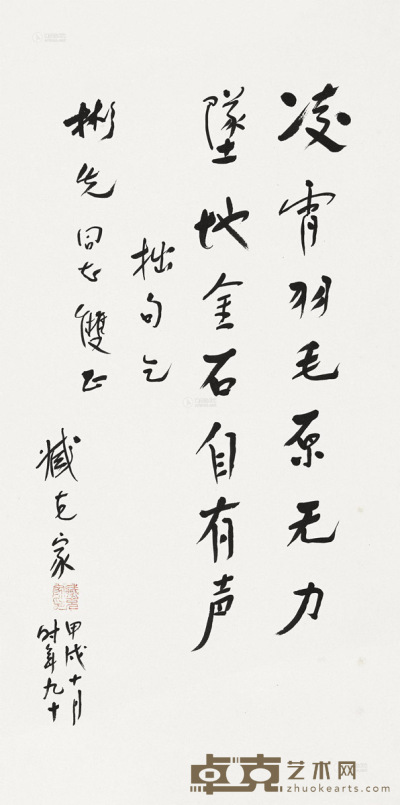 凌霄羽毛原无力
墜地金石自有声
拙句乞
彬先同志雙正
臧克家
甲戌十月
时年九十
卓克艺术网
zhuokearts.com